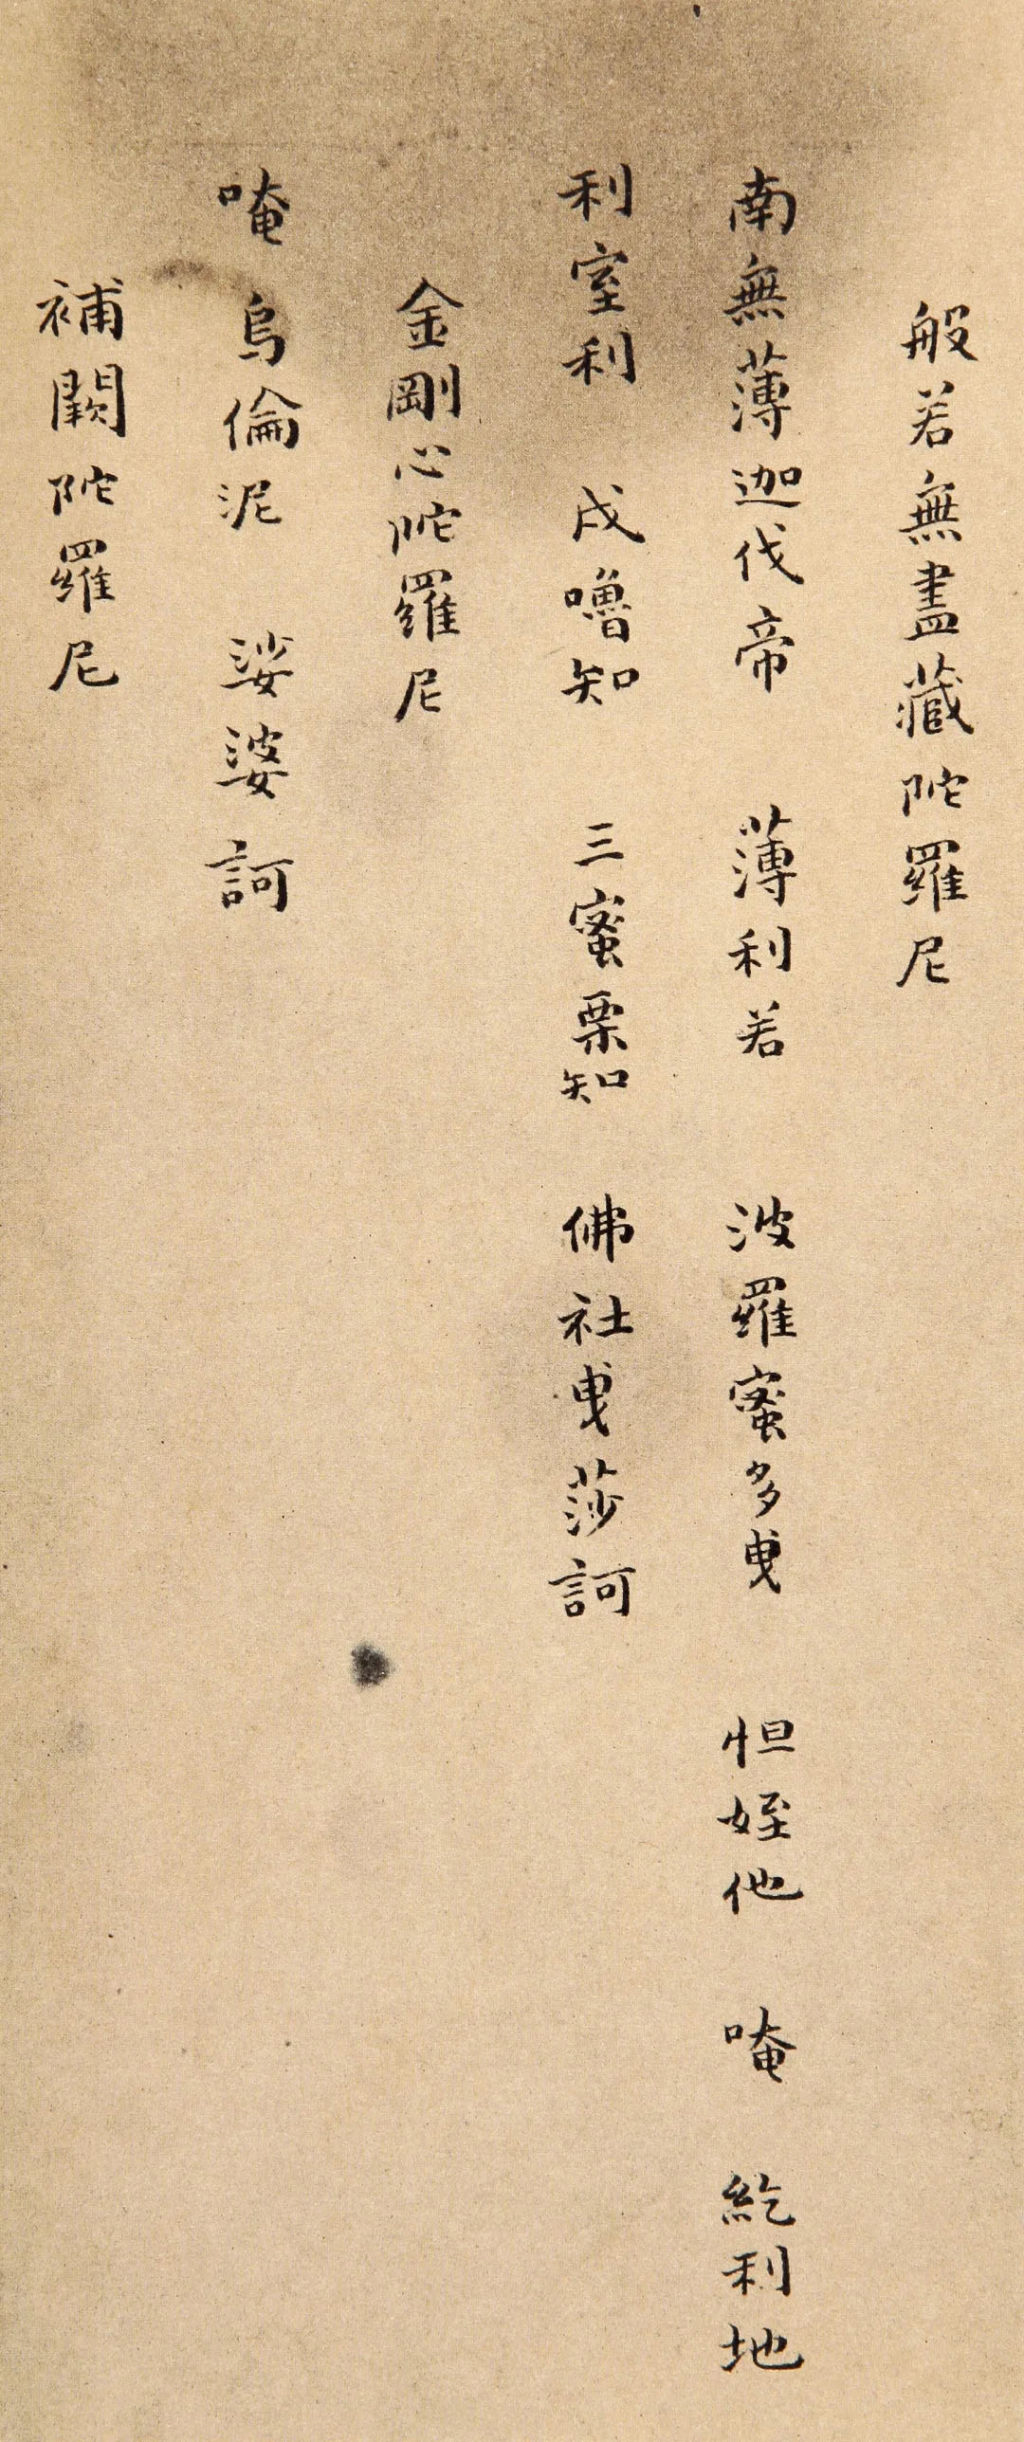 般若無盡藏陀羅尼
南無薄迦伐帝 薄利若 波羅蜜多曳 怛姪他 唵 紇利地
利室利 戍嚕知 三蜜栗知 佛社曳莎訶
金剛心陀羅尼
唵烏倫泥 娑婆訶
補闕陀羅尼